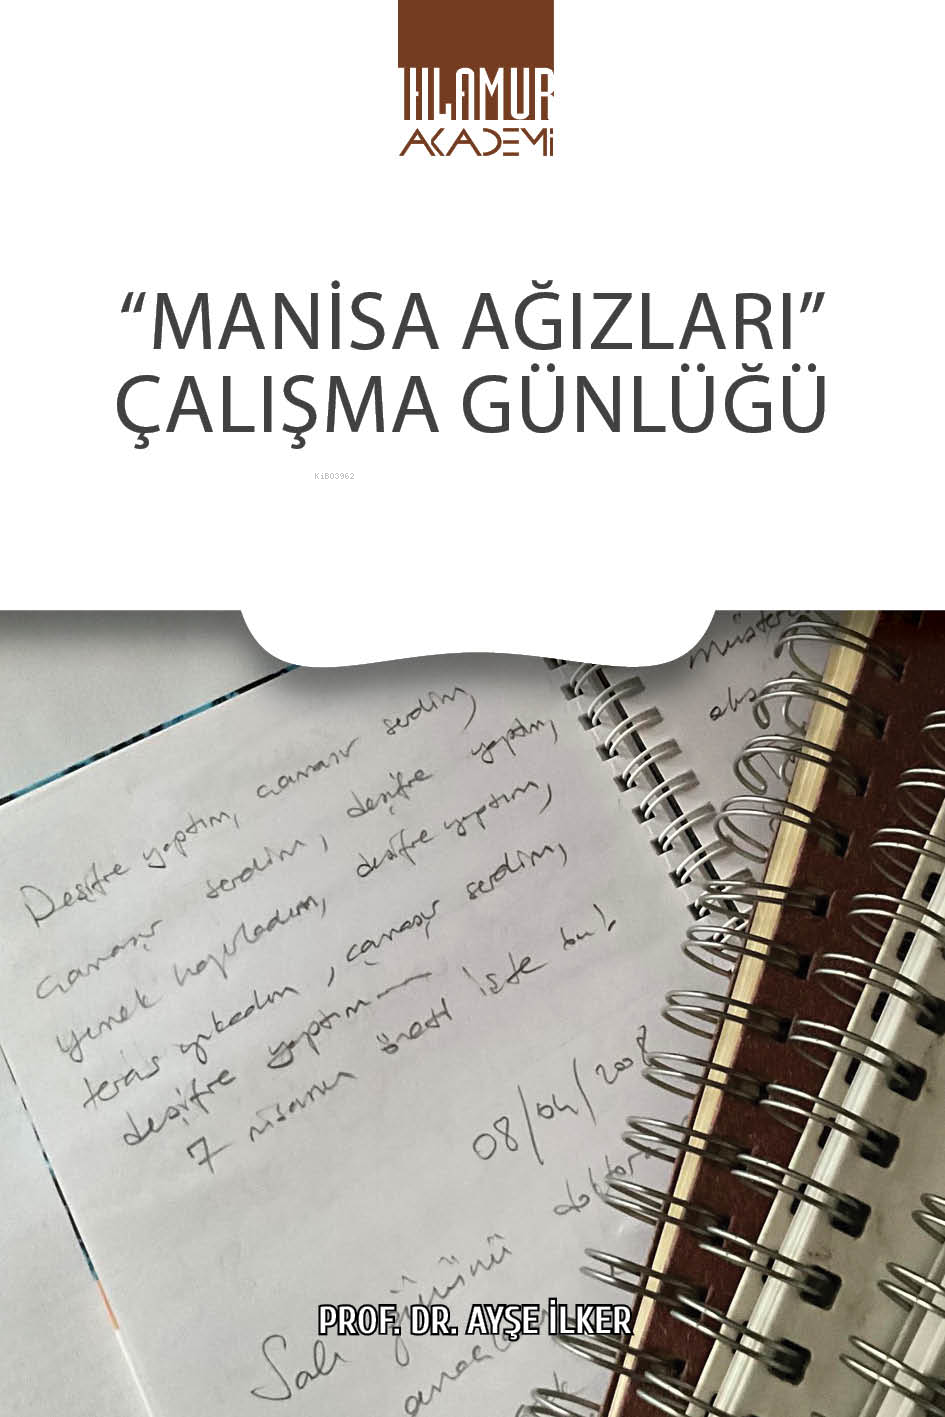 IHLAMUR
AKADEMİ
“MANİSA AĞIZLARI”
ÇALIŞMA GÜNLÜĞÜ
KiB03962
Müsteri
Deşifre yaptım, çamaşır serdim,
çamaşır serdim, deşifre yaptım,
yemek hazırladım, deşifre yaptım,
teras yıkadım, çamaşır serdim,
deşifre yaptım
7 nisanın özeti işte bu!
08/04/2008
Salı gününü doktor
PROF. DR. AYŞE İLKER